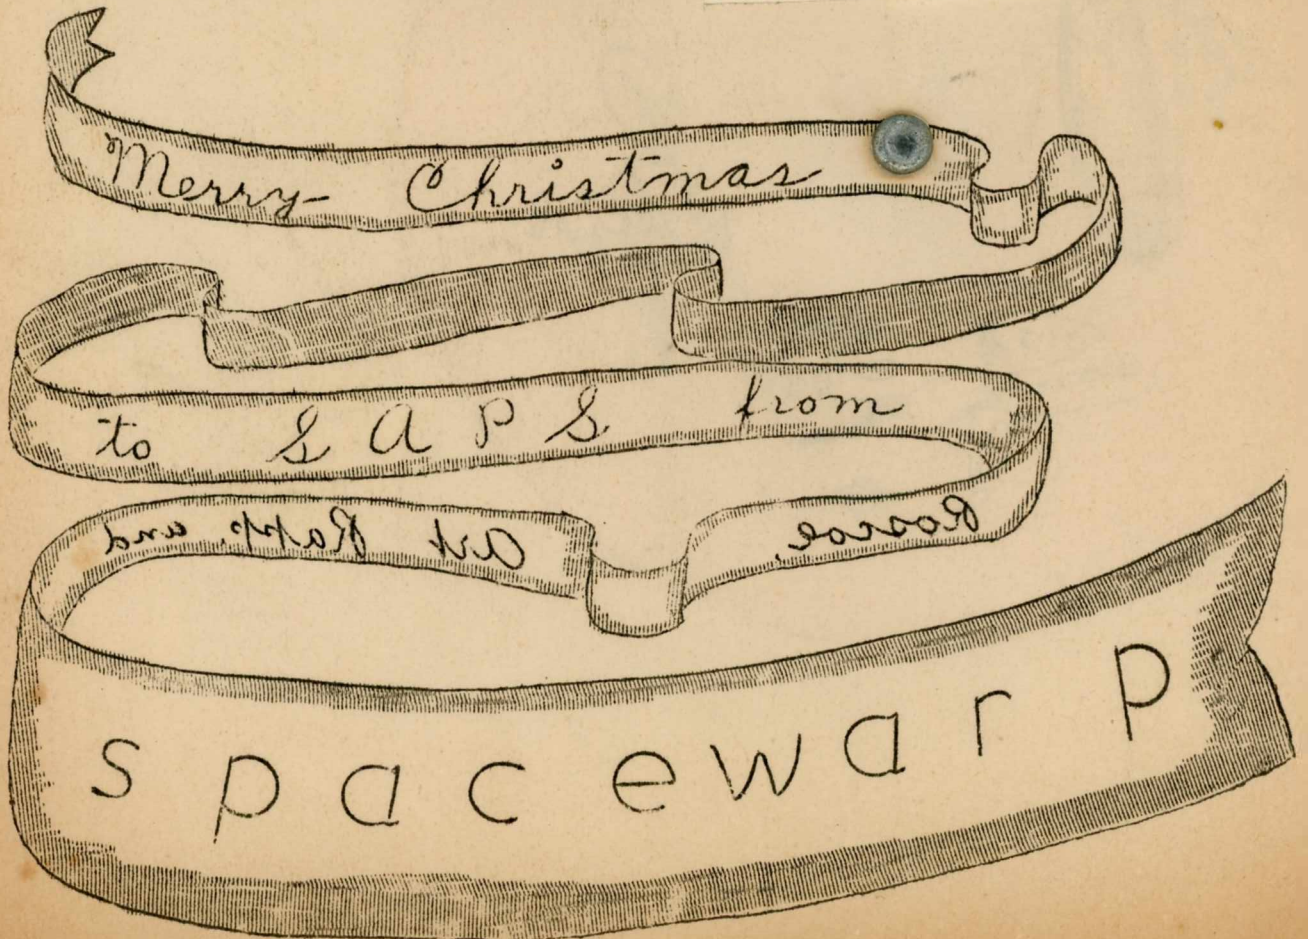 Merry Christmas
to S A P S from
Roscoe, Art Rapp, and
spacewarp